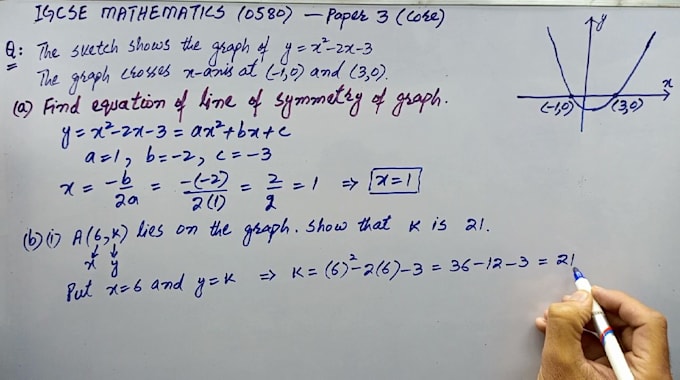 IGCSE MATHEMATICS (0580) – Paper 3 (Core)
Q: The sketch shows the graph of y = x²-2x-3
The graph crosses x-axis at (-1,0) and (3,0).
(a) Find equation of line of symmetry of graph.
y = x²-2x-3 = ax²+bx+c
a=1, b=-2, c=-3
x = -b/2a = -(-2)/2(1) = 2/2 = 1 ⇒ x=1
(b)(i) A(6,K) lies on the graph. Show that K is 21.
↓ ↓
x y
Put x=6 and y=K ⇒ K = (6)²-2(6)-3 = 36-12-3 = 21
y
x
(-1,0) (3,0)